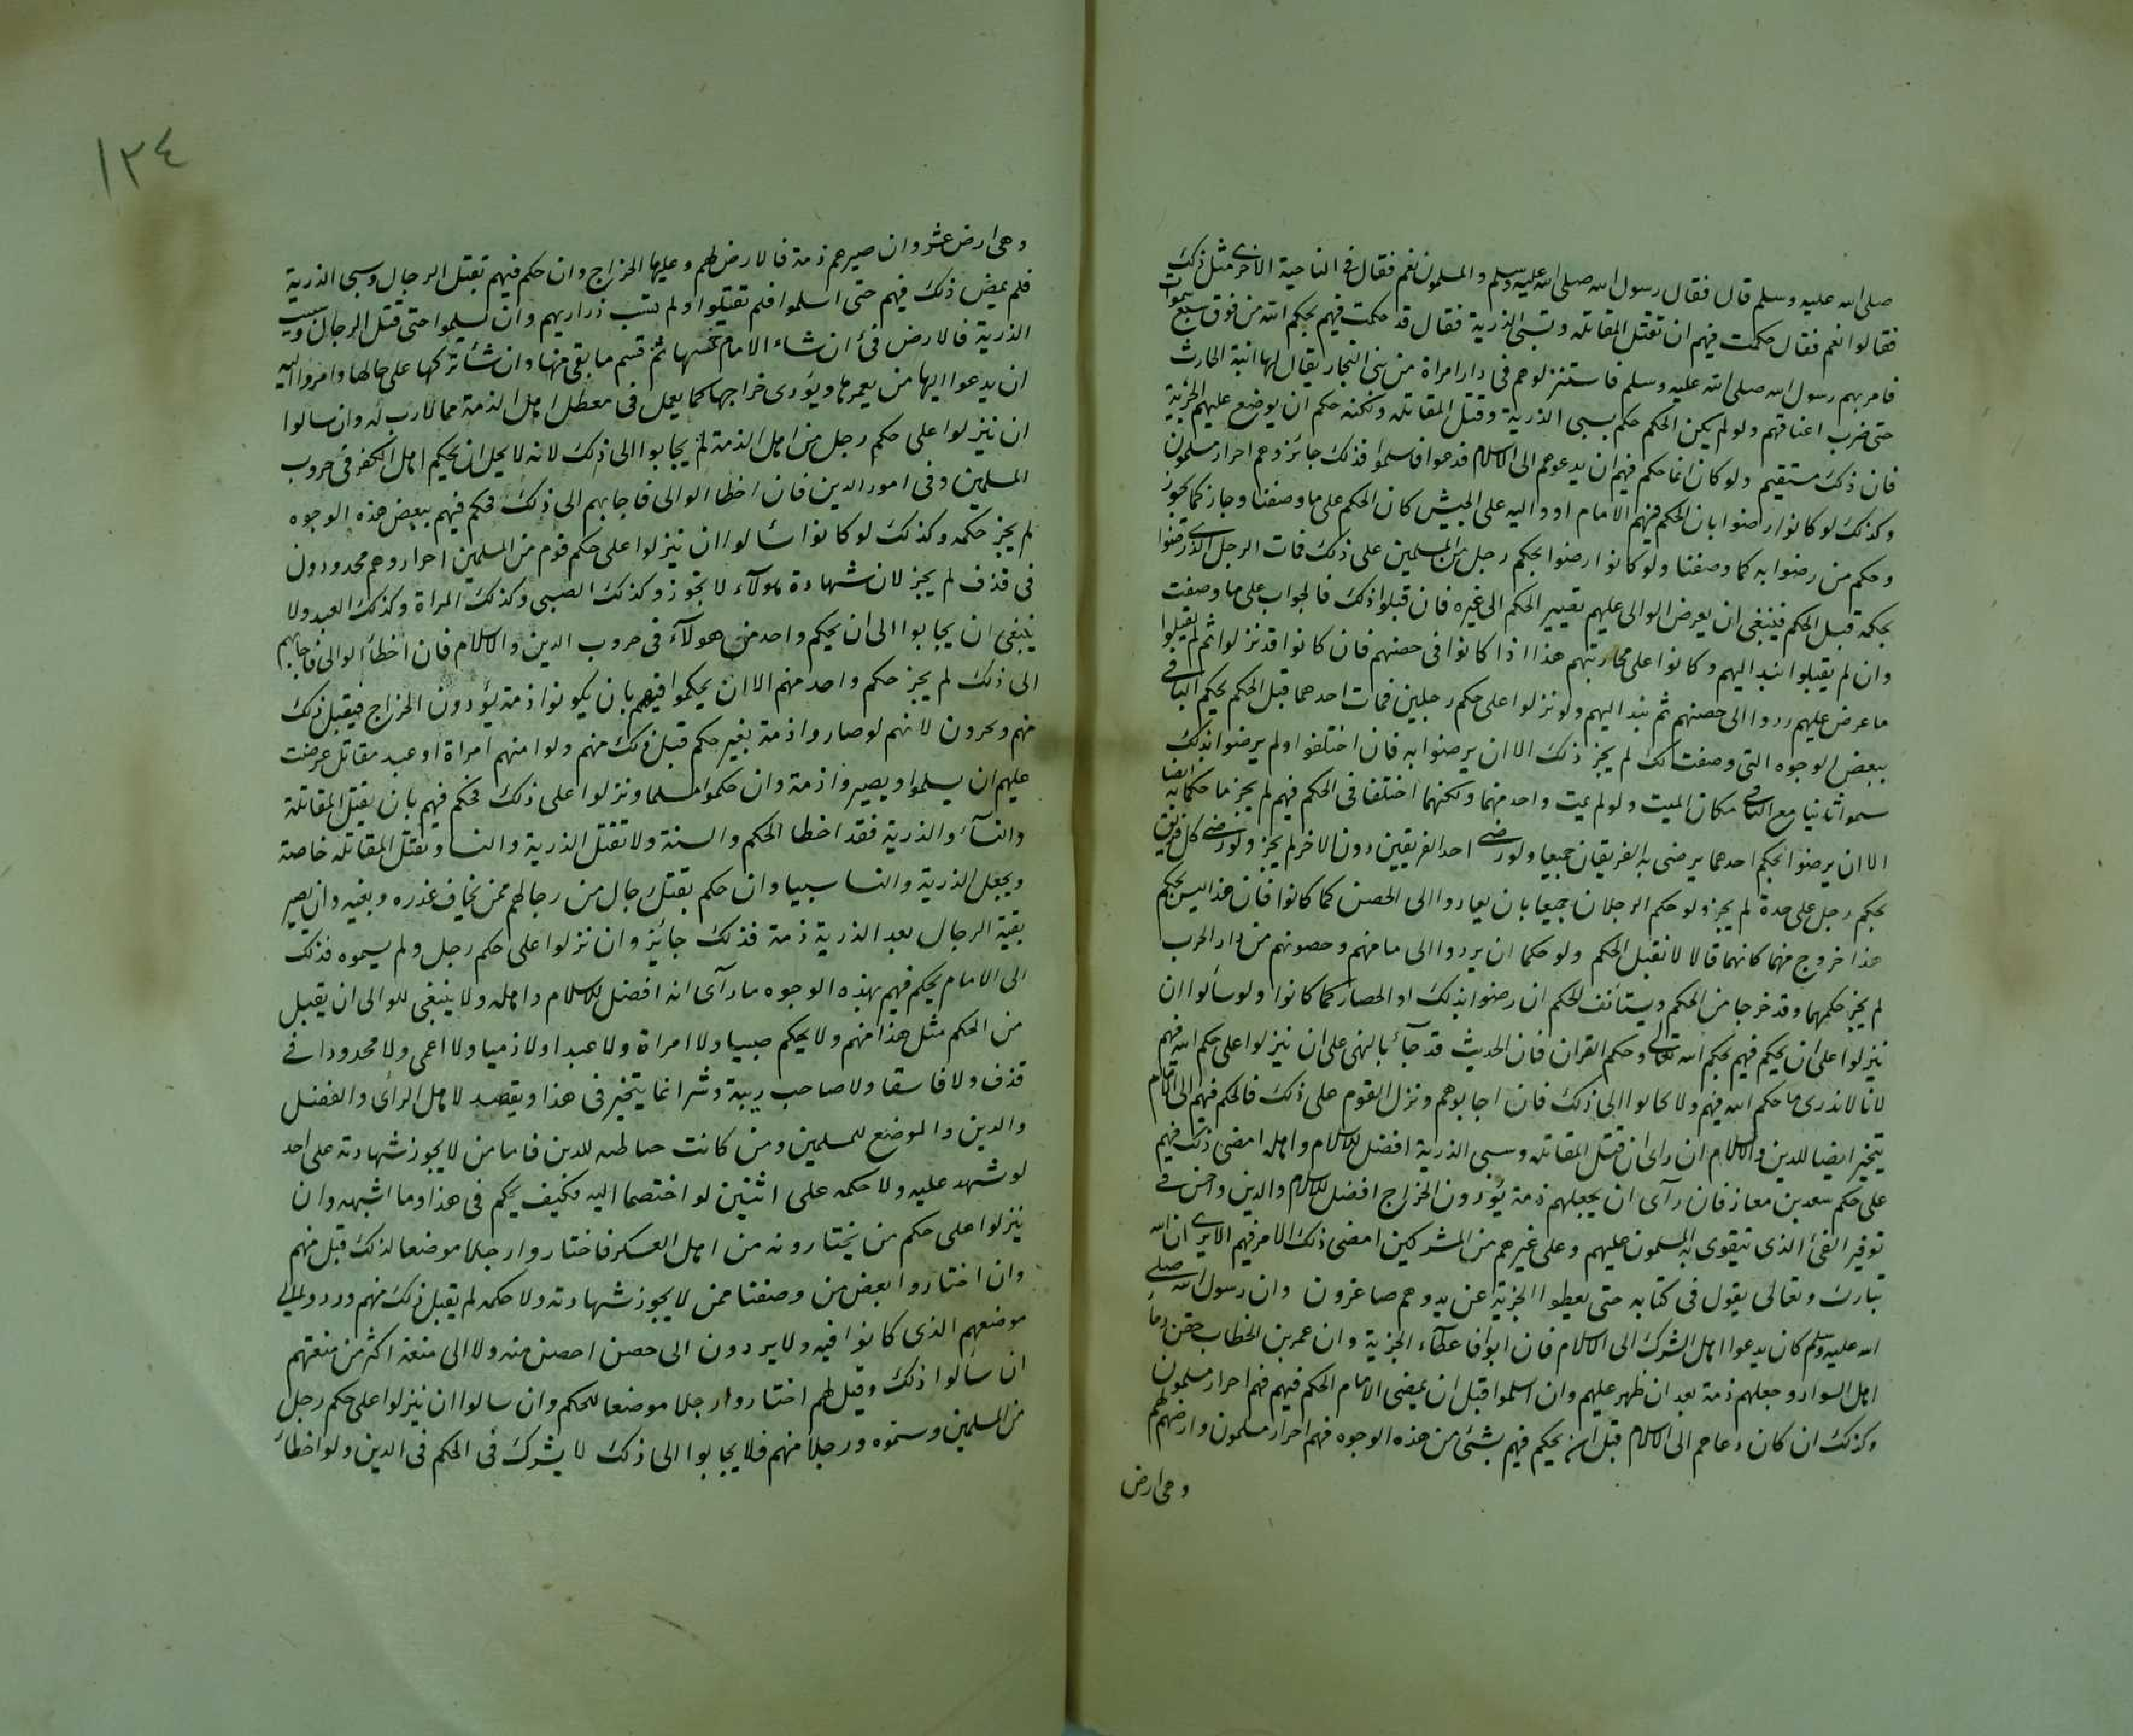 صلى الله عليه وسلم قال فقال رسول الله صلى الله عليه وسلم والمسلمون نعم فقال في الناحية الاخرى مثل ذلك
فقالوا نعم فقال حكمت فيهم ان تقتل المقاتله وتسبى الذرية فقال قد حكمت فيهم بحكم الله من فوق سبع سموات
فامر بهم رسول الله صلى الله عليه وسلم فاستنزلوهم في دار امراة من بني النجار يقال لها ابنة الحارث
حتى ضرب اعناقهم ولو لم يكن الحكم حكم بسبي الذرية وقتل المقاتله ولكنه حكم ان يوضع عليهم الجزية
فان ذلك مستقيم ولو كان انما حكم فيهم ان يدعوهم الى الاسلام فدعوا فاسلموا فذلك جائز وهم احرار مسلمون
وكذلك لو كانوا رضوا بان الحكم فيهم الامام او واليه على الجيش كان الحكم على ما وصفنا وجاز كما يجوز
وحكم من رضوا به كما وصفنا ولو كانوا رضوا بحكم رجل من المسلمين على ذلك فمات الرجل الذي رضوا
بحكمه قبل الحكم فينبغي ان يعرض الوالى عليهم تغيير الحكم الى غيره فان قبلوا ذلك فالجواب على ما وصفت
وان لم يقبلوا نبذ اليهم وكانوا على محاربتهم هذا اذا كانوا في حصنهم فان كانوا قد نزلوا ثم لم يقبلوا
ما عرض عليهم ردوا الى حصنهم ثم نبذ اليهم ولو نزلوا على حكم رجلين فمات احدهما قبل الحكم بحكم الباقي
ببعض الوجوه التي وصفت لك لم يجز ذلك الا ان يرضوا به فان اختلفوا ولم يرضوا بذلك
سموا ثانيا مع الباقي مكان الميت ولو لم يمت واحد منهما ولكنهما اختلفا في الحكم فيهم لم يجز ما حكما به ايضا
الا ان يرضوا بحكم احدهما يرضى به الفريقان جميعا ولو رضي احد الفريقين دون الاخر لم يجز ولو رضي كل فريق
بحكم رجل على حدة لم يجز ولو حكم الرجلان جميعا بان يعادوا الى الحصن كما كانوا فان هذا ليس بحكم
هذا خروج منهما كانهما قالا لا نقبل الحكم ولو حكما ان يردوا الى مامنهم وحصونهم من دار الحرب
لم يجز حكمهما وقد خرجا من الحكم ويستأنف الحكم ان رضوا بذلك او الحصار كما كانوا ولو سألوا ان
ينزلوا على ان يحكم فيهم بحكم الله تعالى وحكم القران فان الحديث قد جآء بالنهي على ان ينزلوا على حكم الله فيهم
لانا لا ندرى ما حكم الله فيهم ولا يجابوا الى ذلك فان اجابوهم ونزل القوم على ذلك فالحكم فيهم الى الامام
يتخير ايضا للدين والاسلام ان راى ان قتل المقاتله وسبي الذرية افضل للاسلام واهله امضى ذلك فيهم
على حكم سعد بن معاذ فان رآى ان يجعلهم ذمة يؤدون الخراج افضل للاسلام والدين واحسن في
توفير الفئ الذى تتقوى به المسلمون عليهم وعلى غيرهم من المشركين امضى ذلك الامر فيهم الا يرى ان الله
تبارك وتعالى يقول في كتابه حتى يعطوا الجزية عن يد وهم صاغرون وان رسول الله صلى
الله عليه وسلم كان يدعوا اهل الشرك الى الاسلام فان ابوا فاعطاء الجزية وان عمر بن الخطاب حقن دماء
اهل السواد وجعلهم ذمة بعد ان ظهر عليهم وان اسلموا قبل ان يمضي الامام الحكم فيهم فهم احرار مسلمون
وكذلك ان كان دعاهم الى الاسلام قبل ان يحكم فيهم بشئ من هذه الوجوه فهم احرار مسلمون وارضهم لهم
وهي ارض
١٣٤
وهي ارض عشر وان صيرهم ذمة فالارض لهم وعليها الخراج وان حكم فيهم بقتل الرجال وسبى الذرية
فلم يمض ذلك فيهم حتى اسلموا فلم تقتلوا ولم تسب ذراريهم وان لم يسلموا حتى قتل الرجال وسبيت
الذرية فالارض فئ ان شاء الامام خمسها ثم قسم ما بقى منها وان شاء تركها على حالها وامر واليه
ان يدعوا اليها من يعمرها ويؤدى خراجها كما يعمل في معطل اهل الذمة مما لا رب له وان سالوا
ان ينزلوا على حكم رجل من اهل الذمة لم يجابوا الى ذلك لانه لا يحل ان يحكم اهل الكفر في حروب
المسلمين وفي امور الدين فان اخطا الوالى فاجابهم الى ذلك فحكم فيهم ببعض هذه الوجوه
لم يجز حكمه وكذلك لو كانوا سالوا ان ينزلوا على حكم قوم من المسلمين احرار وهم محدودون
في قذف لم يجز لان شهادة هولآء لا تجوز وكذلك الصبي وكذلك المراة وكذلك العبد ولا
ينبغى ان يجابوا الى ان يحكم واحد من هولآء في حروب الدين والاسلام فان اخطأ الوالى فاجابهم
الى ذلك لم يجز حكم واحد منهم الا ان يحكموا فيهم بان يكونوا ذمة يؤدون الخراج فيقبل ذلك
منهم ويحرون لانهم لو صاروا ذمة بغير حكم قبل ذلك منهم ولو امنهم امراة او عبد مقاتل عرضت
عليهم ان يسلموا ويصيروا ذمة وان حكموا مسلما ونزلوا على ذلك فحكم فيهم بان يقتل المقاتلة
والنسآء والذرية فقد اخطا الحكم والسنة ولا تقتل الذرية والنسا وتقتل المقاتله خاصة
ويجعل الذرية والنسا سبيا وان حكم بقتل رجال من رجالهم ممن يخاف غدره وبغيه وان يصير
بقية الرجال بعد الذرية ذمة فذلك جائز وان نزلوا على حكم رجل ولم يسموه فذلك
الى الامام يحكم فيهم بهذه الوجوه ما رآى انه افضل للاسلام واهله ولا ينبغى للوالى ان يقبل
من الحكم مثل هذا منهم ولا يحكم صبيا ولا امراة ولا عبدا ولا ذميا ولا اعمى ولا محدودا في
قذف ولا فاسقا ولا صاحب ريبة وشر انما يتخير في هذا ويقصد لاهل الرأى والفضل
والدين والموضع للمسلمين ومن كانت حياطته للدين فاما من لا يجوز شهادته على احد
لو شهد عليه ولا حكمه على اثنين لو اختصما اليه فكيف يحكم في هذا وما اشبهه وان
ينزلوا على حكم من يختارونه من اهل العسكر فاختاروا رجلا موضعا لذلك قبل منهم
وان اختاروا بعض من وصفنا ممن لا يجوز شهادته ولا حكمه لم يقبل ذلك منهم وردوا الى
موضعهم الذى كانوا فيه ولا يردون الى حصن احصن منه ولا الى منعة اكثر من منعتهم
ان سألوا ذلك وقيل لهم اختاروا رجلا موضعا للحكم وان سالوا ان ينزلوا على حكم رجل
من المسلمين وسموه ورجلا منهم فلا يجابوا الى ذلك لا يشرك في الحكم في الدين ولو اخطأ